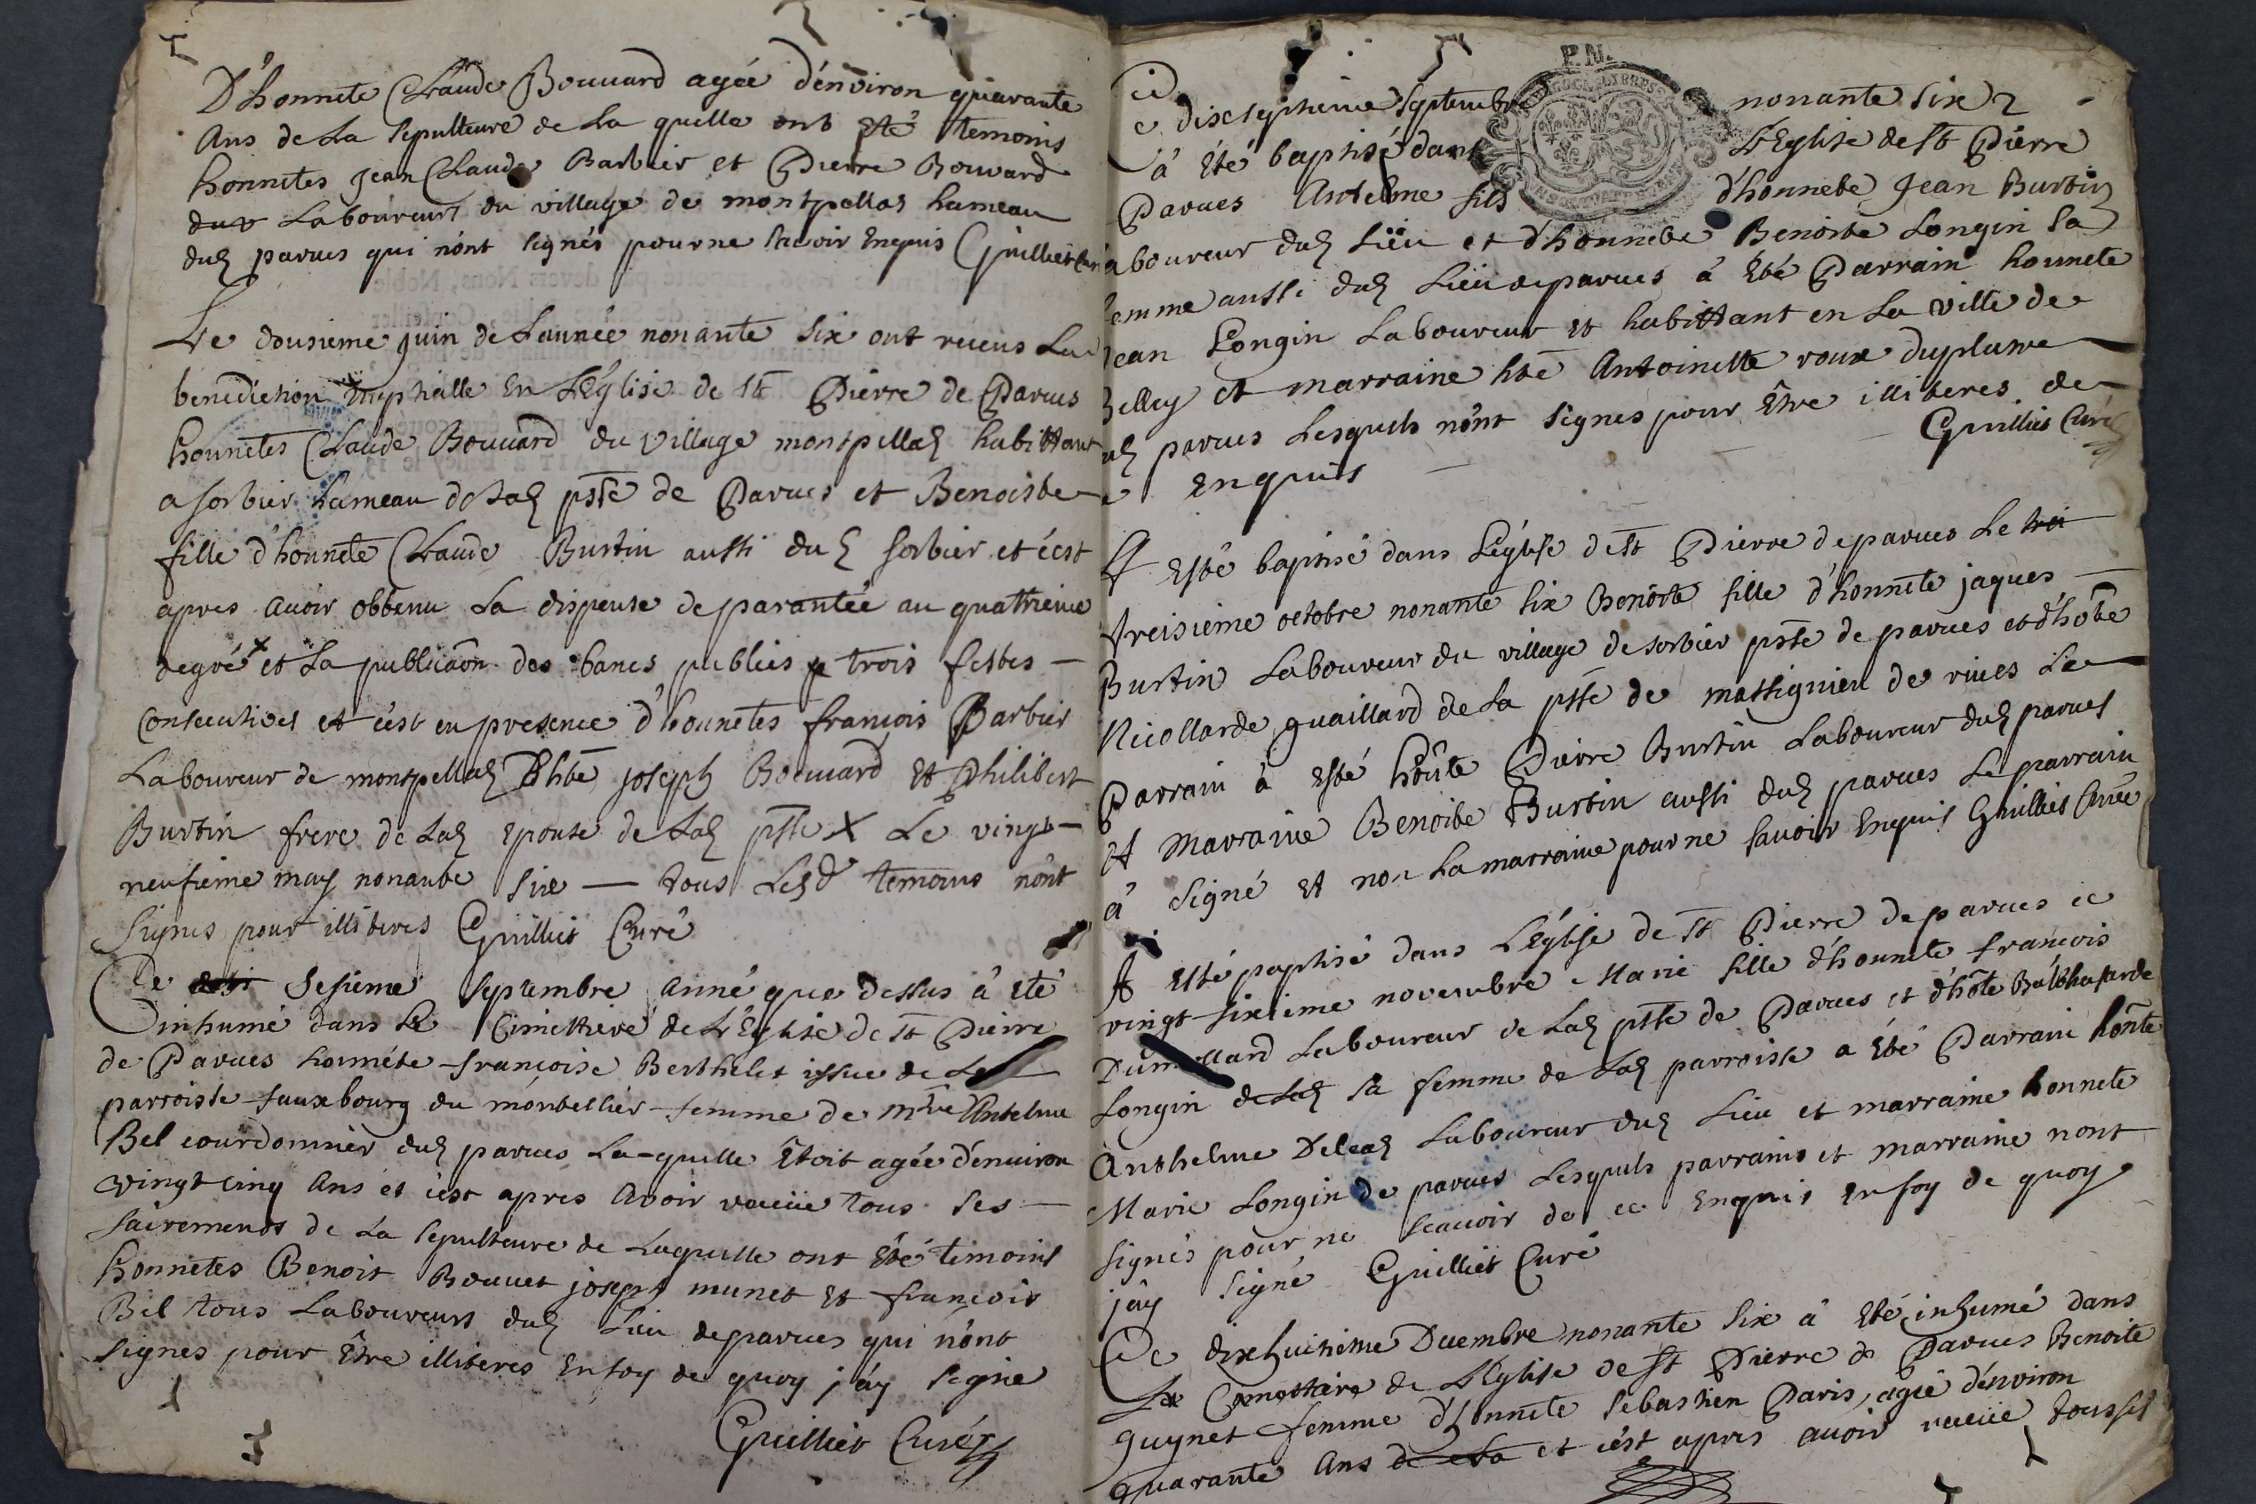 D'honnete Claude Bouuard agée d'environ quarante
Ans de La sepulteure de La quelle ont été temoins
honnetes jean Claude Barbier et Pierre Bouuard
dus Laboureurs du village de montpellas hameau
dud parues qui n'ont signés pour ne scavoir Enquis Guilliet Curé
Le dousieme juin de L'année nonante six ont receus La
benediction nuptialle En L'Eglise de st Pierre de Parues
honnetes Claude Bouuard du village montpellaz habittant
a sorbier hameau de Lad psse de Parues et Benoiste
fille d'honnete Claude Burtin aussi dud sorbier et c'est
apres auoir obtenu La dispense de parantée au quatrieme
degré x et La publicaon des bancs publies p trois festes —
Consecutiues et c'est en presence d'honnetes francois Barbier
Laboureur de montpellaz hte joseph Bouuard et Philibert
Burtin frere de Lad epouse de Lad psse X Le vingt—
neufieme may nonante six — tous Lesd temoins n'ont
signes pour illiteres Guilliet Curé
Ce sesieme septembre anné que dessus à eté
inhumé dans Le Cimettiere de L'Eglise de st Pierre
de Parues honnéte francoise Berthelet issue de
parroisse fauxbourg du montellier femme de mtre Antelme
Bel courdonnier dud parues La-quelle Etoit agée d'enuiron
vingt cinq Ans et c'est apres Avoir receue tous ses —
sacrements de La sepulteure de Laquelle ont été temoins
honnetes Benoit Bouuet joseph munet et francois
Bel tous Laboureurs dud Lieu de parues qui n'ont
signes pour être illiteres En foy de quoy j'ay signé
Guilliet Curé
Ce dixseptieme septembre nonante six
à été baptisé dans L'Eglise de st Pierre
Parues Antelme fils d'honnete Jean Burtin
Laboureur dud Lieu et d'honnete Benoite Longin sa
femme aussi dud Lieu de parues à été Parrain honnete
jean Longin Laboureur et habittant en La ville de
Belley et marraine hte Antoinette roux duplume
dud parues Lesquels n'ont signes pour être illiteres de
ce enquis Guilliet Curé
A esté baptisé dans L'église de st Pierre de parues Le troi
treisieme octobre nonante six Benoite fille d'honnete jaques —
Burtin Laboureur du village de sorbier psse de parues et d'hote
Nicollarde guaillard de La psse de massignieu de riues Le
Parrain à esté hôute Pierre Burtin Laboureur dud parues
et Marraine Benoite Burtin aussi dud parues Le parrain
à signé et non La marraine pour ne sauoir Enquis Guilliet Curé
A esté paptisé dans L'église de st Pierre de parues ce
vingt-sixieme novembre Marie fille d'honnete francois
Dumollard Laboureur de Lad psse de Parues et d'hôte Balthasarde
Longin de Lad sa femme de Lad parroisse a été Parrain honte
Anthelme Deleaz Laboureur dud Lieu et marraine honnete
Marie Longin de parues Lesquels parrains et marraine nont
signés pour ne scauoir de ce Enquis en foy de quoy
j'ay signé Guilliet Curé
Ce dixhuitieme Decembre nonante six à été inhumé dans
Le Cimettaire de L'Eglise de st Pierre de Parues Benoite
guynet femme d'honnete sebastien Paris, agée d'environ
quarante Ans de La et c'est apres auoir receue tous ses